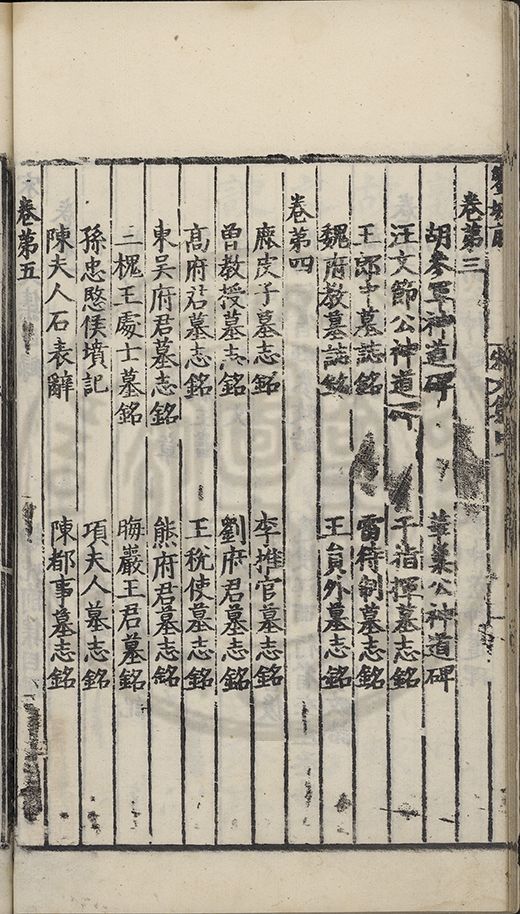 卷第三
胡參軍神道碑 華巢公神道碑
汪文節公神道碑 于指揮墓志銘
王郎中墓誌銘 雷待制墓志銘
魏府教墓誌銘 王員外墓志銘
卷第四
麻皮子墓志銘 李推官墓志銘
曾教授墓志銘 劉府君墓志銘
高府君墓志銘 王稅使墓志銘
東吳府君墓志銘 熊府君墓志銘
三槐王處士墓銘 晦巖王君墓銘
孫忠愍侯墳記 項夫人墓志銘
陳夫人石表辭 陳都事墓志銘
卷第五